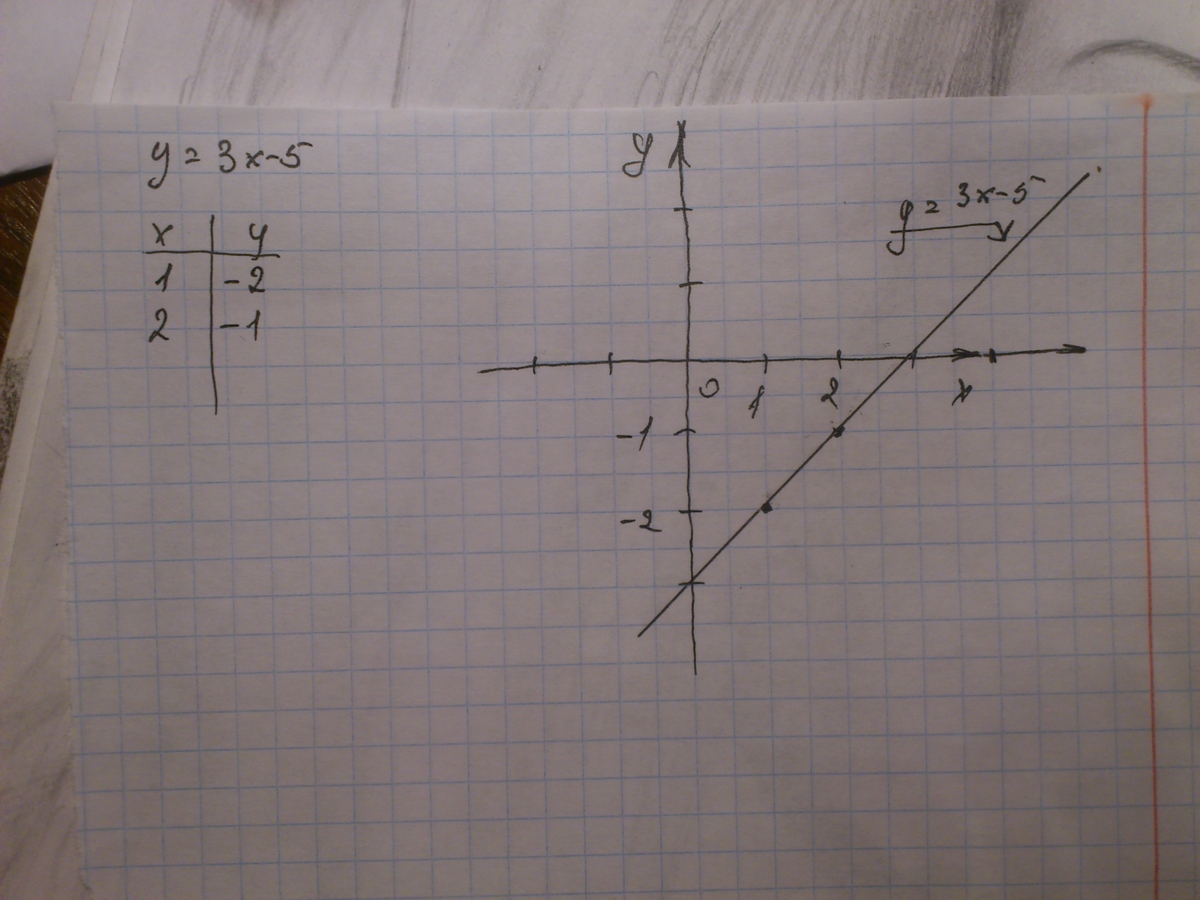 y = 3x-5
x y
1 -2
2 -1
y
y = 3x-5
0 1 2 x
-1
-2